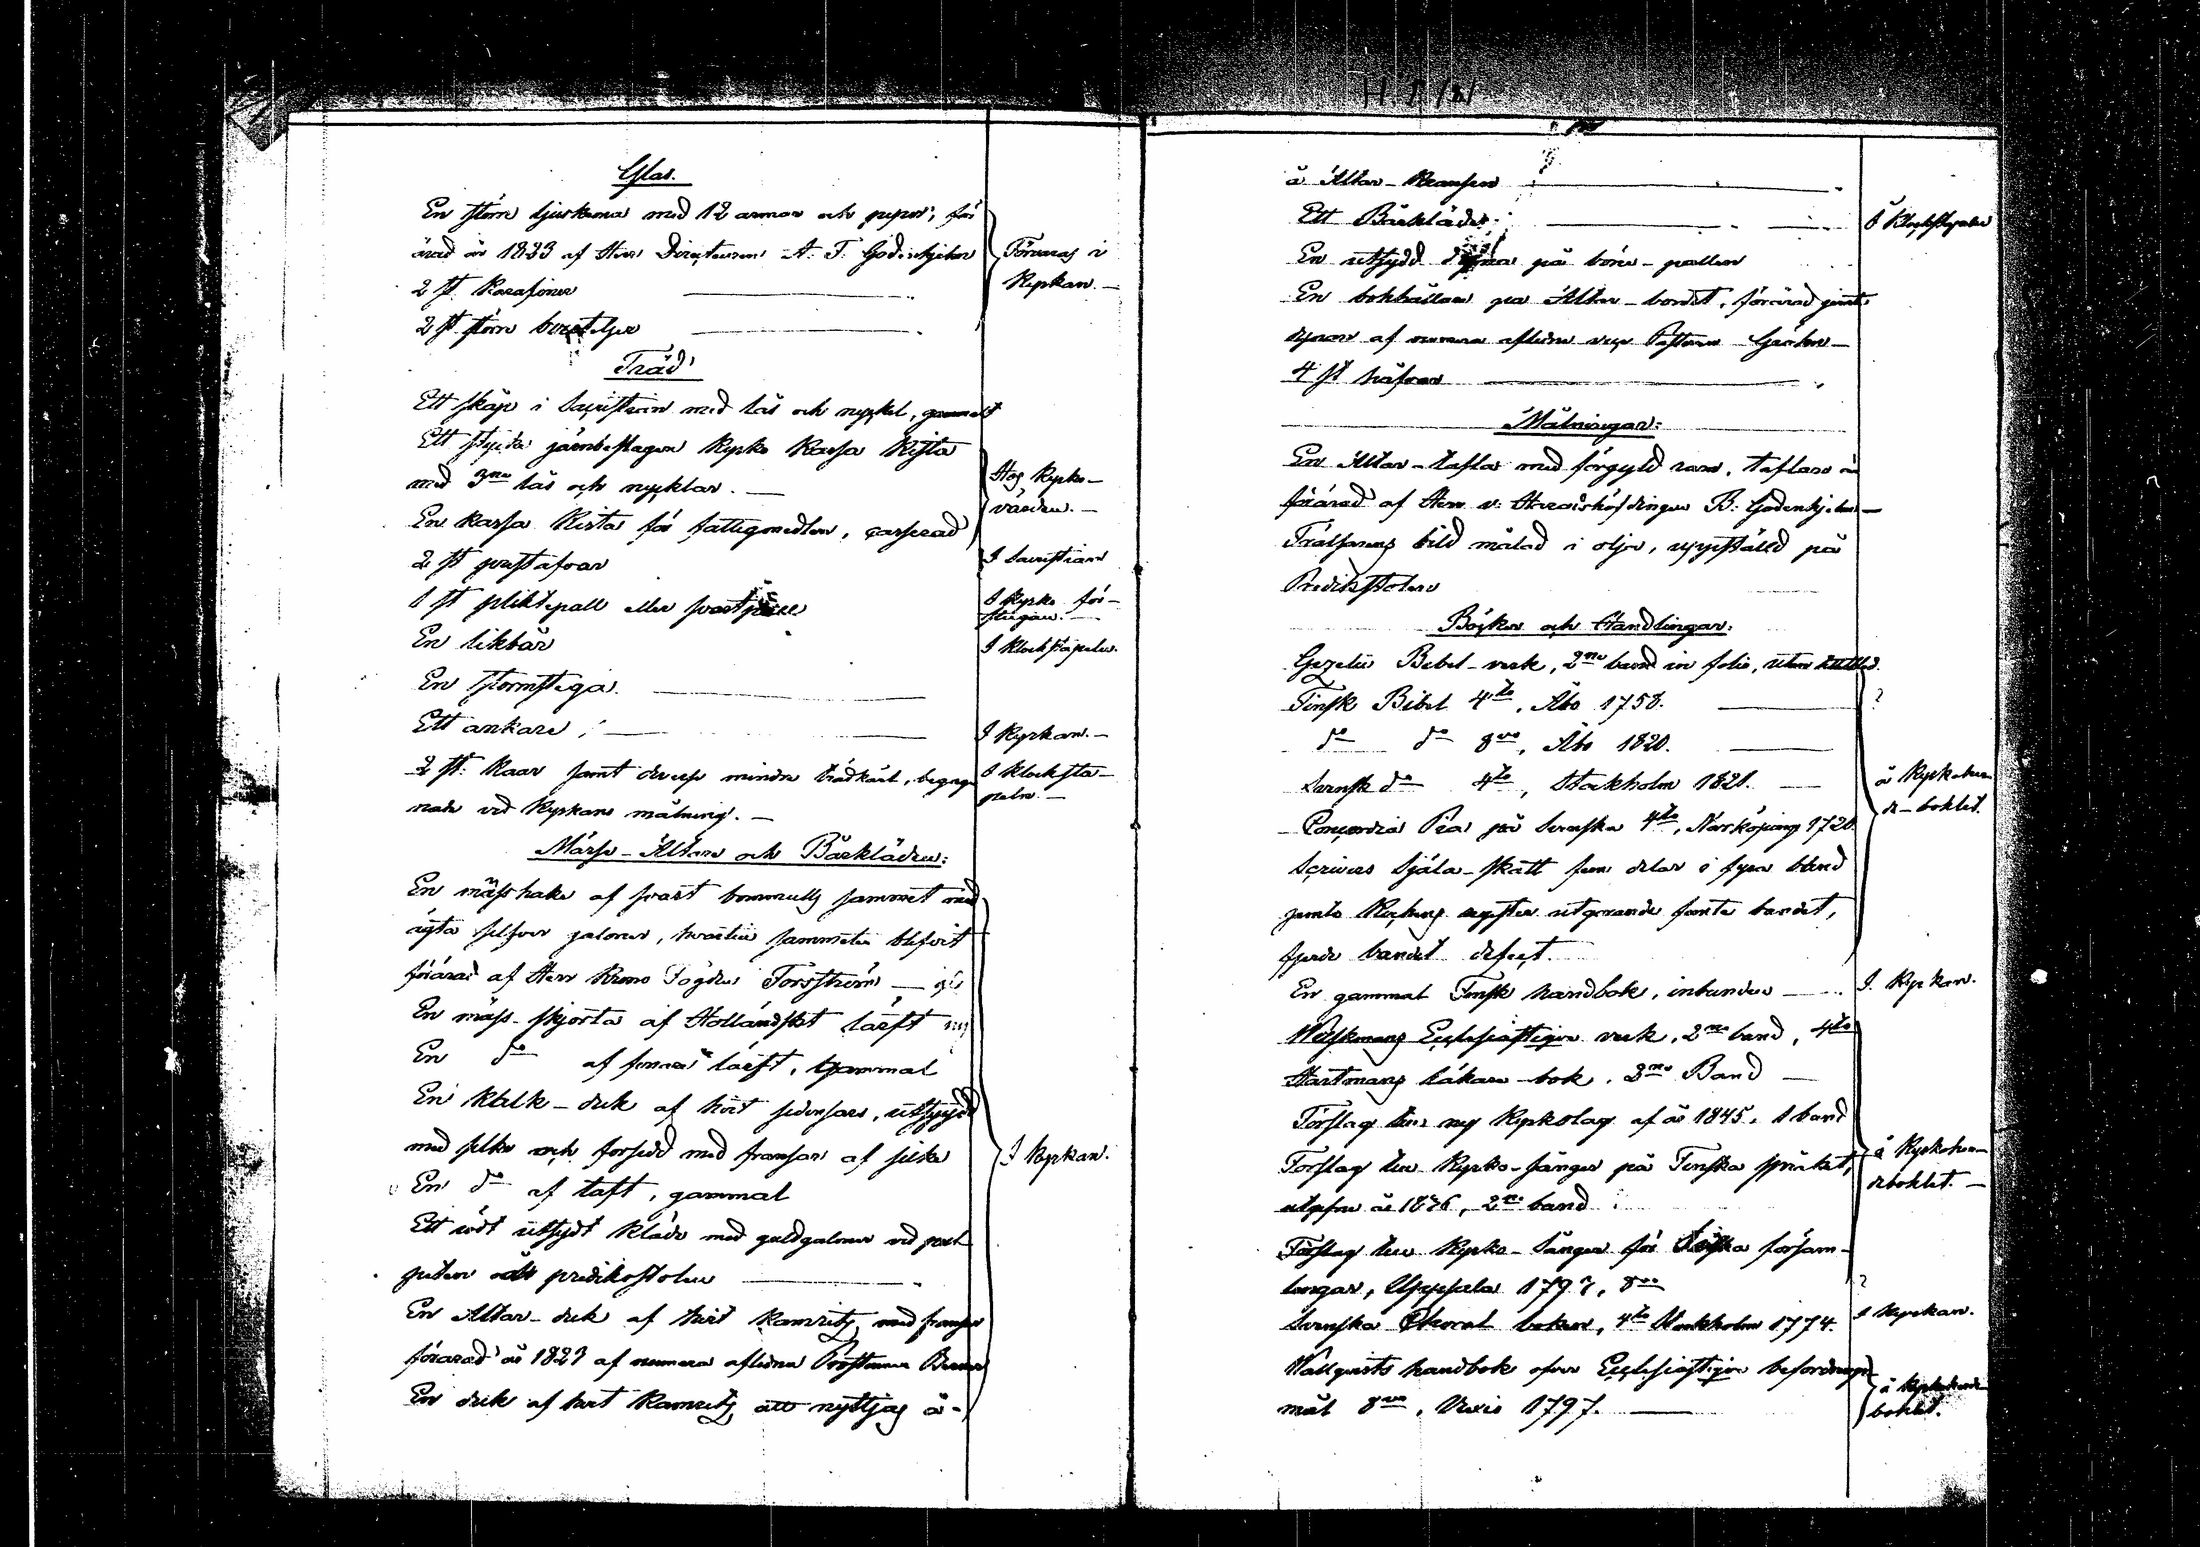 Glas.
En större ljuskrona med 12 armar och pipor, för
ärad år 1833 af Herr Directeuren A. F. Godenhjelm
2 st. Karafiner
2 st större bouteljer
Förvaras i
Kyrkan. —
Träd
Ett skåp i Sacristian med lås och nyckel, gammalt
Ett stycke järnbeslagen Kyrko Kassa Kista
med 3ne lås och nycklar. —
En Kassa Kista för fattigmedlen, casserad
Hos Kyrko-
värden. —
2 st prestafvar
I Sacristian
1 st pliktepall eller
I Kyrko för-
stugan. —
En likbår
I Klockstapeln.
En stormstega.
Ett ankare
I Kyrkan. —
2 st. Kaar samt diverse mindre trädkärl, begag-
nade vid Kyrkans målning. —
I Klocksta-
peln. —
Mässe-Altare och Bårkläden:
En mässhake af svart bomulls sammet med
ägta silfver galoner, hvartill sammetn blifvit
förärad af Herr Krono Fogden Forsström —
En mäss-skjorta af Hollandskt lärft
En do af lärft, gammal
En Kalk-duk af hvit sidensars, utsydd
med silke och försedd med fransar af silke
En do af taft, gammal
Ett rödt utsydt kläde med guldgaloner vid
predikostolen
En Altar-duk af hvit Kamritz med fransar
förärad år 1823 af numera aflidna Prostinnan
En duk af hvit Kamritz att nyttjas å
I Kyrkan.
H. I
å Altar-Kransen
Ett Bårkläde
I Klockstapeln
En utsydd på pallen
En bokhållare på Altar-bordet, förärad jemte
dynan af numera aflidne vice Pastorn
4 st håfvar
Målningar:
En Altar-tafla med förgyld ram, taflan är
förärad af Herr v. Häradshöfdingen B. Godenhjelm —
Frälsarens bild målad i olja, uppställd på
Predikstolen
Böcker och Handlingar:
Gezelii Bibel-verk, 2ne band in folio, utan titelblad.
Finsk Bibel 4to, Åbo 1758.
?
do do 8vo, Åbo 1820.
Svensk do 4to, Stockholm 1821.
Concordia Pia på Svenska 4to, Norrköping 1720.
Scrivers Själa-skatt fem delar i fyra band
jemte register utgörande femte bandet,
fjerde bandet defect.
å Kyrkoher-
de-bohlet.
En gammal Finsk handbok, inbunden
I Kyrkan.
Wilskmans Ecclesiastique verk, 2ne band, 4to
Hartmans läkare-bok, 2ne Band
Förslag till ny Kyrkolag af år 1845, 1 band
Förslag till Kyrko-sånger på Finska språket,
utgifven år 1836, 2ne band
å Kyrkoher-
debohlet. —
Förslag till Kyrko-Sånger för Svenska försam-
lingar, Uppsala 1793, 8vo
?
Svenska Choral boken, 4to Stockholm 1774.
I Kyrkan.
Wallquists handbok öfver Ecclesiastique befordrings-
mål 8vo, Wexiö 1797.
å Kyrkoherde-
bohlet.